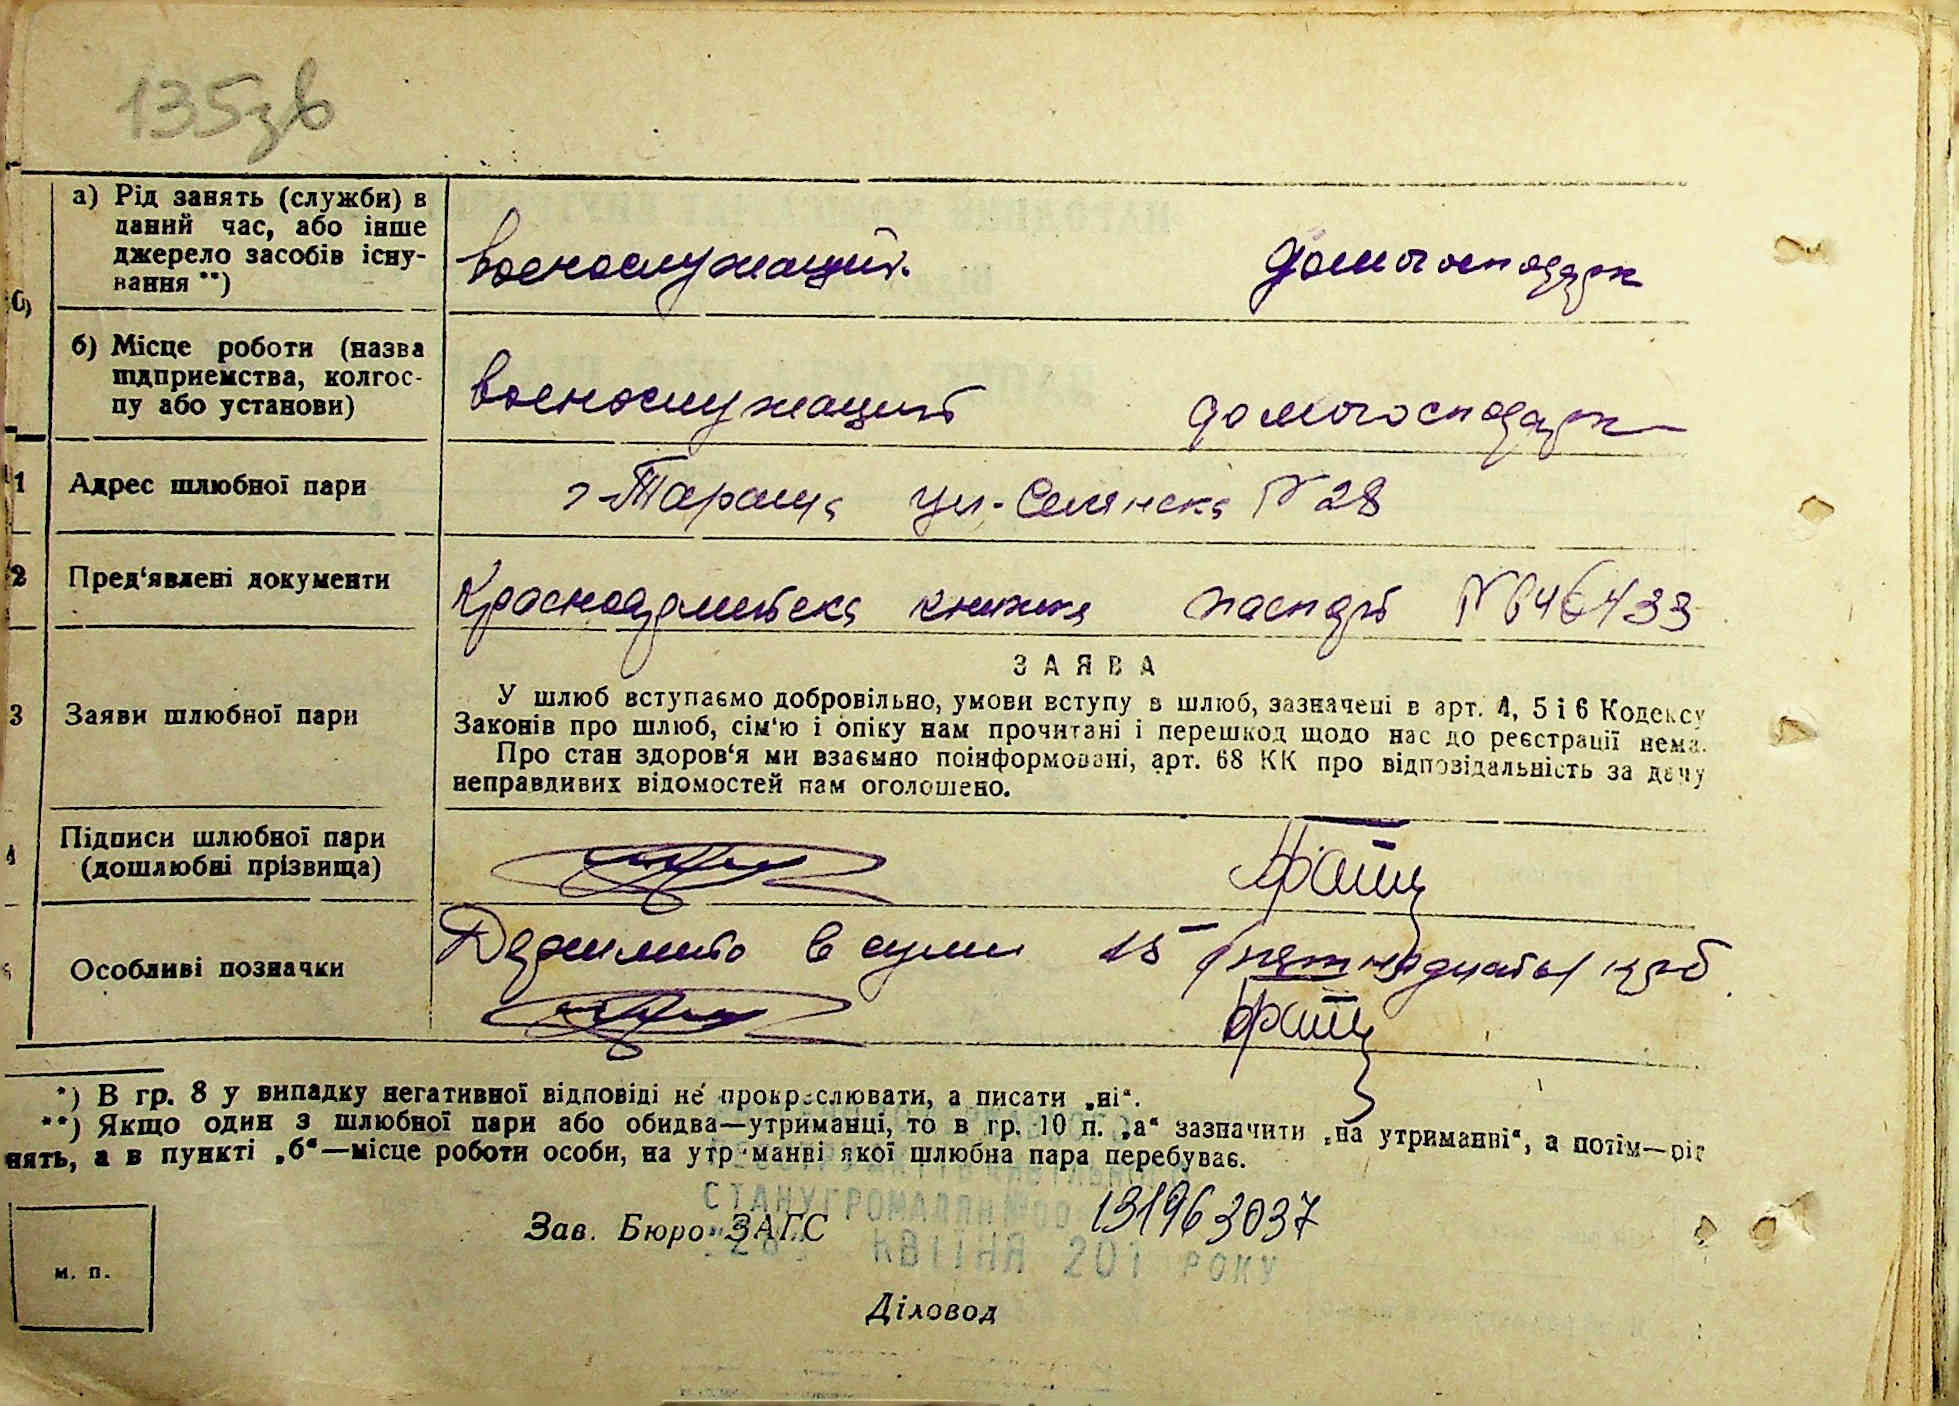 135зв
а) Рід занять (служби) в
даний час, або інше
джерело засобів існу-
вання **)
воєнослужащий.
домогосподарк
б) Місце роботи (назва
підприємства, колгос-
пу або установи)
воєнослужащий
домогосподарк
1 Адрес шлюбної пари
г-Тараща ул-Селянска N 28
2 Пред'явлені документи
Красноармейска книжка паспорт N 646433
3 Заяви шлюбної пари
ЗАЯВА
У шлюб вступаємо добровільно, умови вступу в шлюб, зазначені в арт. 4, 5 і 6 Кодексу
Законів про шлюб, сім'ю і опіку нам прочитані і перешкод щодо нас до реєстрації нема.
Про стан здоров'я ми взаємно поінформовані, арт. 68 КК про відповідальність за дачу
неправдивих відомостей нам оголошено.
Підписи шлюбної пари
(дошлюбні прізвища)
Особливі позначки
в сумі 15 (пятнадцать) крб
*) В гр. 8 у випадку негативної відповіді не прокреслювати, а писати „ні“.
**) Якщо один з шлюбної пари або обидва—утриманці, то в гр. 10 п. „а“ зазначити „на утриманні“, а потім—рід
нять, а в пункті „б“—місце роботи особи, на утриманні якої шлюбна пара перебуває.
Зав. Бюро ЗАГС
131963037
КВІТНЯ 201 РОКУ
м. п.
Діловод